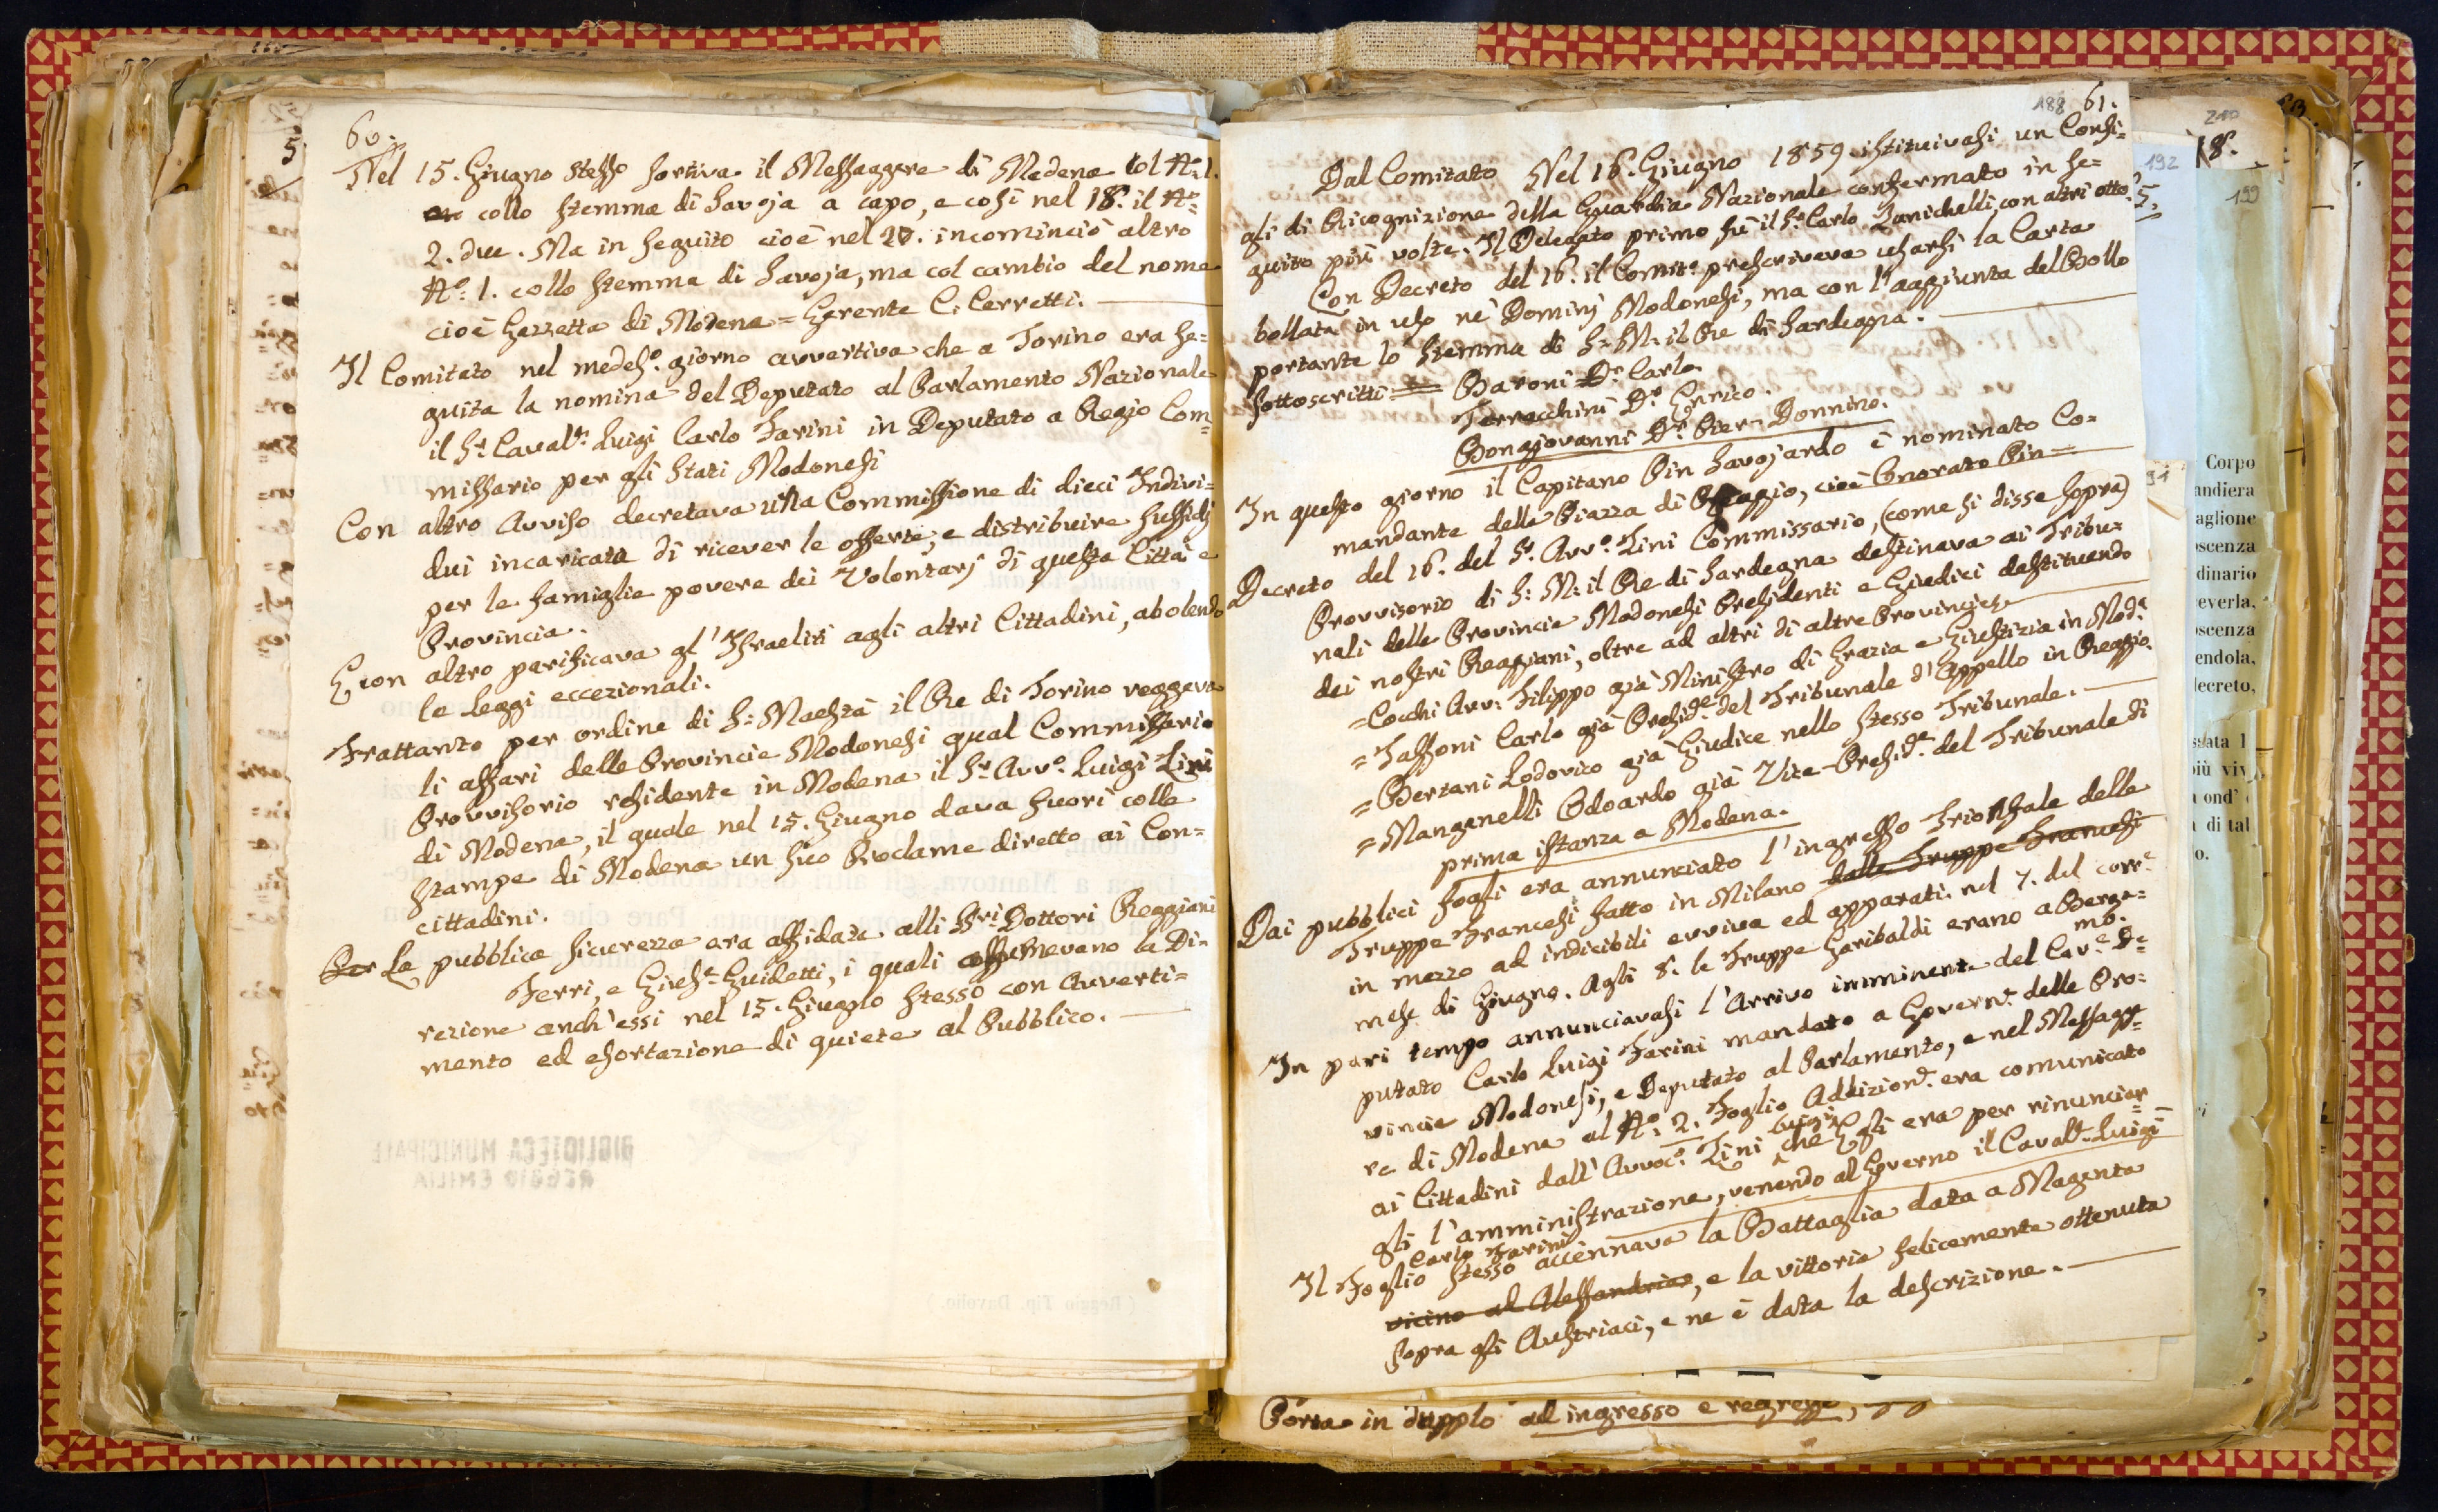 60.
Nel 15. Giugno stesso sortiva il Messaggere di Modena col N.º 1.
collo stemma di Savoja a capo, e così nel 18. il N.º
2. due. Ma in seguito cioè nel 20. incominciò altro
N.º 1. collo stemma di Savoja, ma col cambio del nome
cioè Gazzetta di Modena = Gerente C. Cerretti.
Il Comitato nel medes.º giorno avvertiva che a Torino era se=
guita la nomina del Deputato al Parlamento Nazionale
il S.r Caval.r Luigi Carlo Farini in Deputato a Regio Com=
missario per gli Stati Modonesi
Con altro Avviso decretava una Commissione di dieci Indivi=
dui incaricata di ricever le offerte, e distribuire sussidj
per le famiglie povere dei Volontarj di questa Città e
Provincia.
E con altro parificava gl'Israeliti agli altri Cittadini, abolendo
le Leggi eccezionali.
Frattanto per ordine di S: Maestà il Re di Torino reggeva
li affari delle Provincie Modonesi qual Commissario
Provvisorio residente in Modena il S.r Avv.º Luigi Zini
di Modena, il quale nel 15. Giugno dava fuori colle
stampe di Modena un suo Proclama diretto ai Con=
cittadini.
Per La pubblica sicurezza era affidata alli S.ri Dottori Reggiani
Ferri, e Gius.e Guidetti, i quali assumevano la Di=
rezione anch'essi nel 15. Giugno stesso con Avverti=
mento ed esortazione di quiete al Pubblico.
BIBLIOTECA MUNICIPALE
REGGIO EMILIA
( Reggio Tip. Davolio. )
188 61.
Dal Comitato Nel 16. Giugno 1859 istituivasi un Consi=
gli di Ricognizione della Guardia Nazionale confermato in se=
guito più volte. Il Delegato primo fu il S.r Carlo Zanichelli, con altri otto.
Con Decreto del 16. il Comit.º prescriveva usarsi la Carta
bollata in uso nè Dominj Modonesi, ma con l'aggiunta del Bollo
portante lo stemma di S: M: il Re di Sardegna.
Sottoscritti = Baroni D.r Carlo
Terrachini D.r Enrico.
Bongiovanni D.r Pier-Donnino.
In questo giorno il Capitano Pin Savojardo è nominato Co=
mandante della Piazza di Reggio, cioè Onorato Pin =
Decreto del 16. del S.r Avv.º Zini Commissario, (come si disse sopra)
Provvisorio di S: M: il Re di Sardegna destinava ai Tribu=
nali delle Provincie Modonesi Presidenti e Giudici destituendo
dei nostri Reggiani, oltre ad altri di altre Provincie
= Cocchi Avv: Filippo già Ministro di Grazia e Giustizia in Mod.a
= Taffoni Carlo già Presid.e del Tribunale d'Appello in Reggio.
= Bertani Lodovico già Giudice nello stesso Tribunale.
= Manganelli Odoardo già Vice-Presid.e del Tribunale di
prima istanza a Modena.
Dai pubblici fogli era annunciato l'ingresso Trionfale delle
Truppe Francesi fatto in Milano dalle Truppe Francesi
in mezzo ad indicibili evviva ed apparati nel 7. del corr.e
mese di Giugno. Agli 8. le Truppe Garibaldi erano a Berga=
mo.
In pari tempo annunciavasi l'Arrivo imminente del Cav.e De=
putato Carlo Luigi Farini mandato a Govern.e delle Pro=
vincie Modonesi, e Deputato al Parlamento, e nel Messagge=
re di Modena al N.º 2. Foglio Addizion.e era comunicato
ai Cittadini dall'Avvoc.º Zini Luigi che Egli era per rinunciar=
gli l'amministrazione, venendo al Governo il Caval.r Luigi
Carlo Farini
Il Foglio stesso accennava la Battaglia data a Magenta
vicino ad Alessandria, e la vittoria felicemente ottenuta
sopra gli Austriaci, e ne è data la descrizione.
Porta in dupplo ad ingresso e regresso,
192
5.
18.
199
Corpo
andiera
aglione
oscenza
dinario
everla,
oscenza
endola,
decreto,